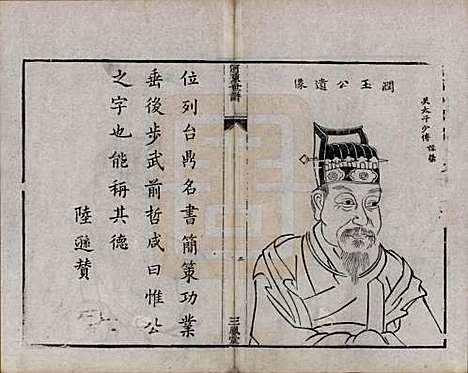 潤玉公遺像
吴太子少傅諱榮
河東世譜
三鳳堂
位列台鼎名書簡策功業
垂後步武前哲咸曰惟公
之字也能稱其德
陸遜贊